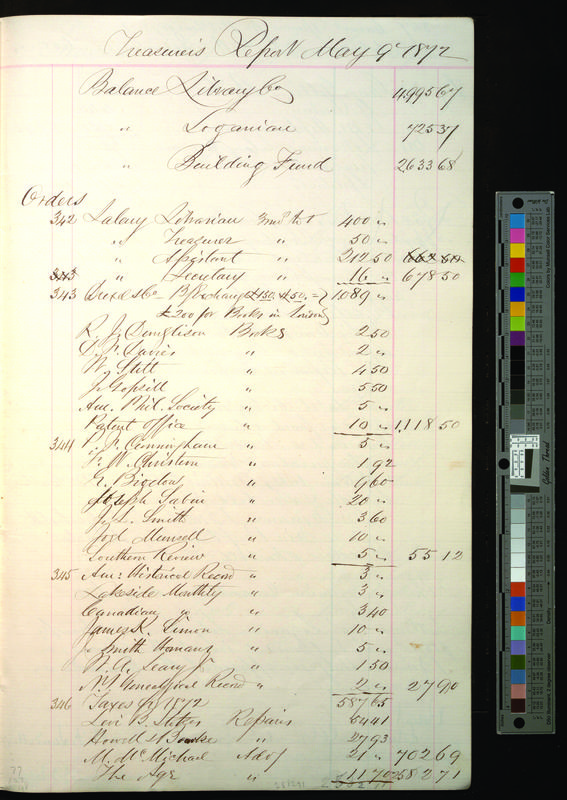 Treasurer's Report May 9th 1872
Balance Library Co 4,995 67
" Loganian 725 37
" Building Fund 2633 68
Orders
342 Salary Librarian 3 mos 400 "
" Treasurer " 50 "
" Assistant " 212 50 662 50
343 " Secretary " 16 " 678 50
343 Drexel & Co B/Exchange £150. & £50. = 1089 "
£200 for Books in London
R. J. Dunglison Books 2 50
Davies " 2 "
Stitt " 4 50
J. Gopsill " 5 50
Am. Phil. Society " 5 "
Patent Office " 10 " 1,118 50
344 Cunningham " 5 "
F. W. Christern " 1 92
Bigelow " 9 60
Joseph Sabin " 20 "
J. L. Smith " 3 60
Joel Munsell " 10 "
Southern Review " 5 " 55 12
345 Am: Historical Record " 3 "
Lakeside Monthly " 3 "
Canadian " " 3 40
James K. Simon " 10 "
Smith " 5 "
W. A. Leary Jr " 1 50
N Y Genealogical Record " 2 " 27 90
346 Taxes for 1872 587 65
Levi B. Repairs 64 41
Howell & Bourke " 27 93
M. McMichael Adv 21 " 702 69
The Age " 1 170 2582 71